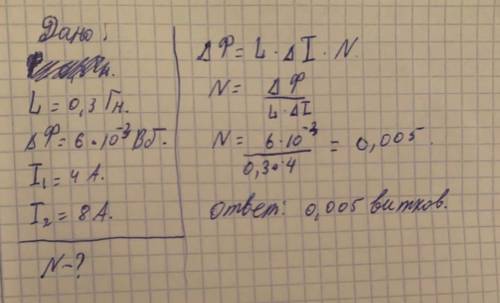 Дано:
L = 0,3 Гн.
ΔФ = 6·10⁻³ Вб.
I₁ = 4 А.
I₂ = 8 А.
N-?
ΔФ = L · ΔI · N.
N = ΔФ / L · ΔI
N = 6·10⁻³ / 0,3·4 = 0,005.
Ответ: 0,005 витков.